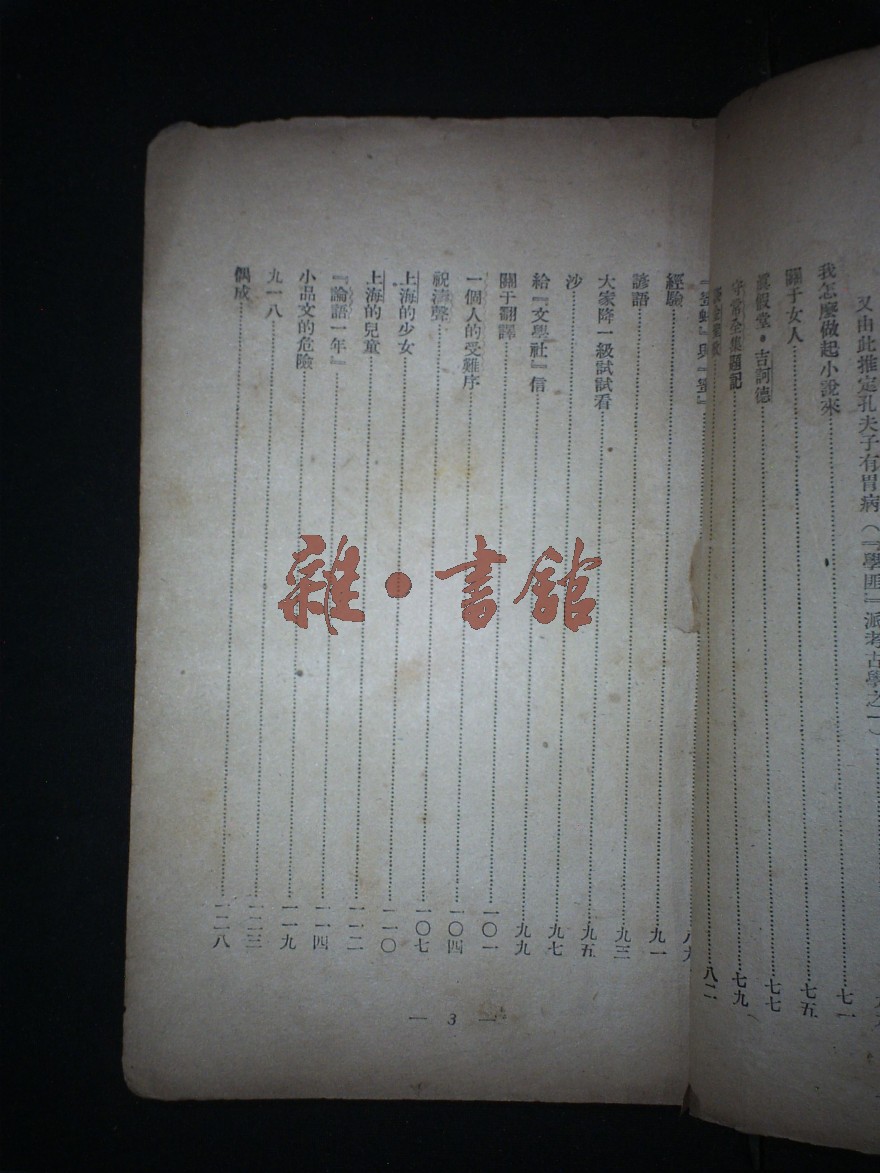 又由此推定孔夫子有胃病（『學匪』派考古學之一）
我怎麼做起小說來⋯⋯七一
關于女人⋯⋯七五
眞假堂・吉訶德⋯⋯七七
守常全集題記⋯⋯七九
⋯⋯八二
『蜜蜂』與『蜜』
經驗⋯⋯九一
諺語⋯⋯九三
大家降一級試試看⋯⋯九五
沙⋯⋯九七
給『文學社』信⋯⋯九九
關于翻譯⋯⋯一〇一
一個人的受難序⋯⋯一〇四
祝濤聲⋯⋯一〇七
上海的少女⋯⋯一一〇
上海的兒童⋯⋯一一二
『論語一年』⋯⋯一一四
小品文的危險⋯⋯一一九
九一八⋯⋯一二三
偶成⋯⋯一二八
— 3 —
雜・書館